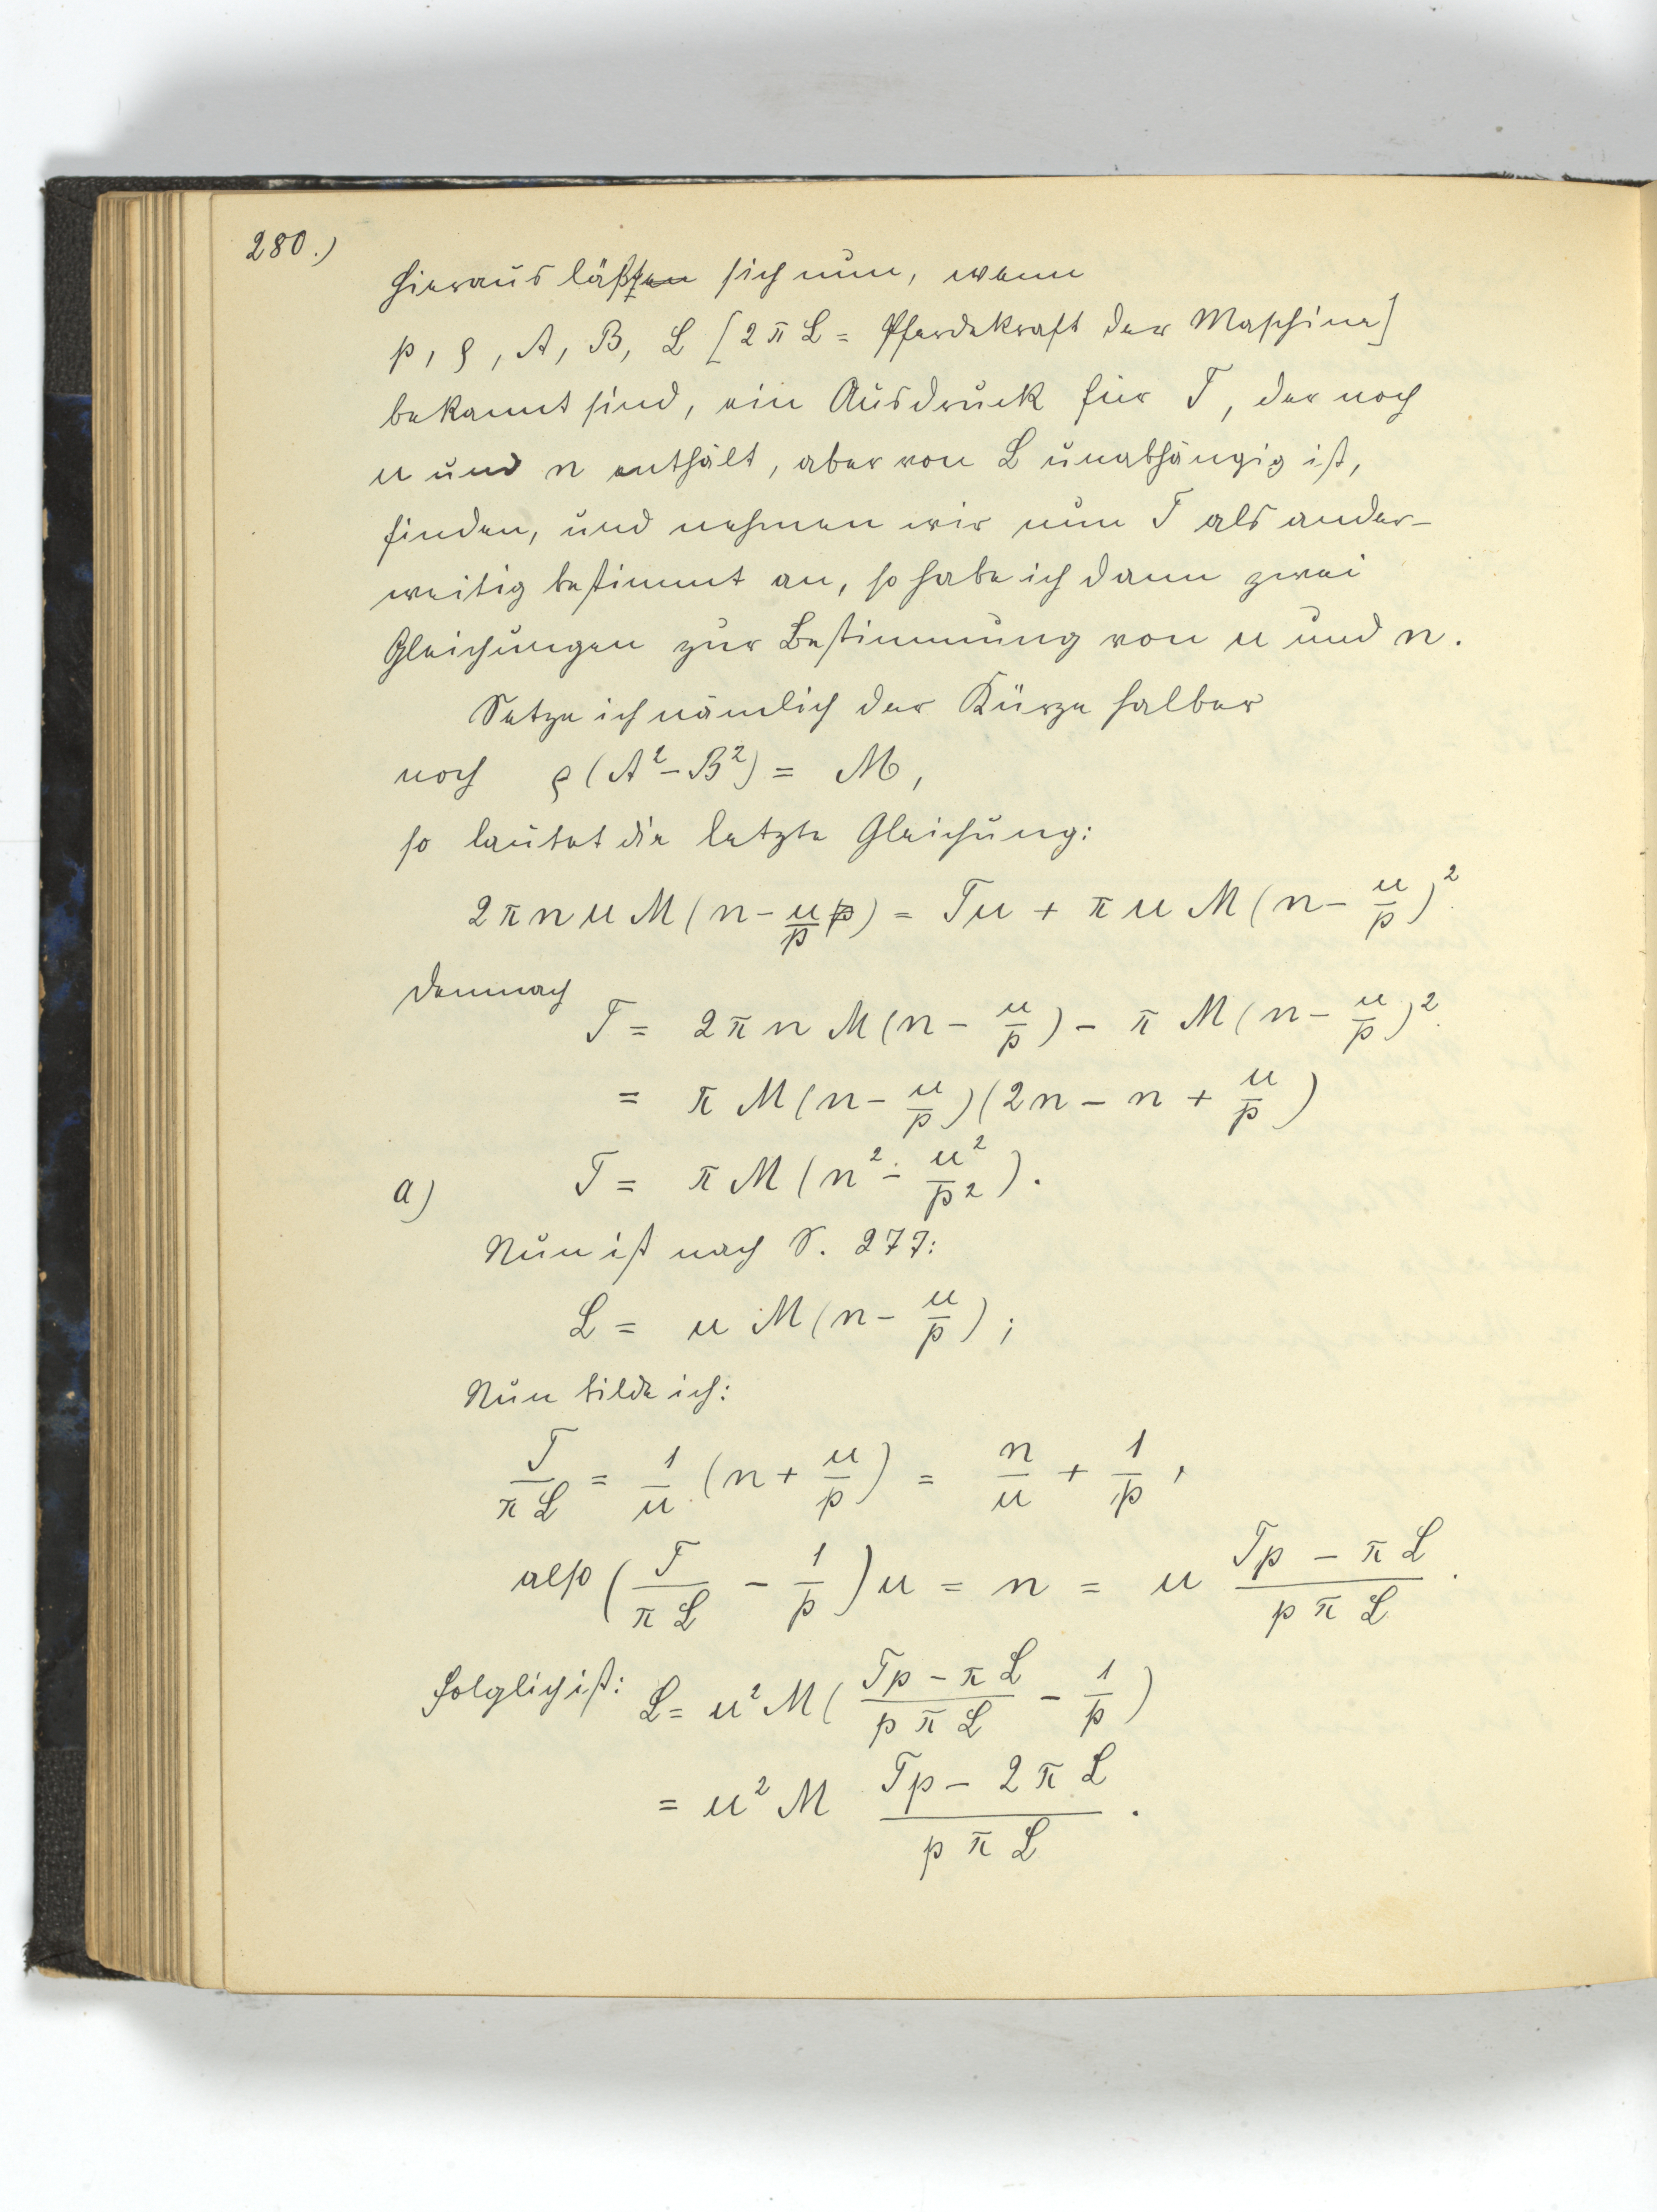 280.)
Hieraus läßt sich nun, wenn
p, ρ, A, B, L [2πL = Pferdekraft der Maschine]
bekannt sind, ein Ausdruck für T, der noch
u und n enthält, aber von L unabhängig ist,
finden, und nehmen wir nun T als ander-
weitig bestimmt an, so habe ich dann zwei
Gleichungen zur Bestimmung von u und n.
Setze ich nämlich der Kürze halber
noch ρ(A²-B²) = M,
so lautet die letzte Gleichung:
2πnuM(n - u/p) = Tu + πuM(n - u/p)².
demnach
T = 2πnM(n - u/p) - πM(n - u/p)².
= πM(n - u/p)(2n - n + u/p)
a) T = πM(n² - u²/p²).
Nun ist nach S. 277:
L = uM(n - u/p);
Nun bilde ich:
T/πL = 1/u.(n + u/p) = n/u + 1/p,
also (T/πL - 1/p)u = n = u (Tp - πL)/(pπL).
folglich ist: L = u²M((Tp - πL)/(pπL) - 1/p)
= u²M (Tp - 2πL)/(pπL).